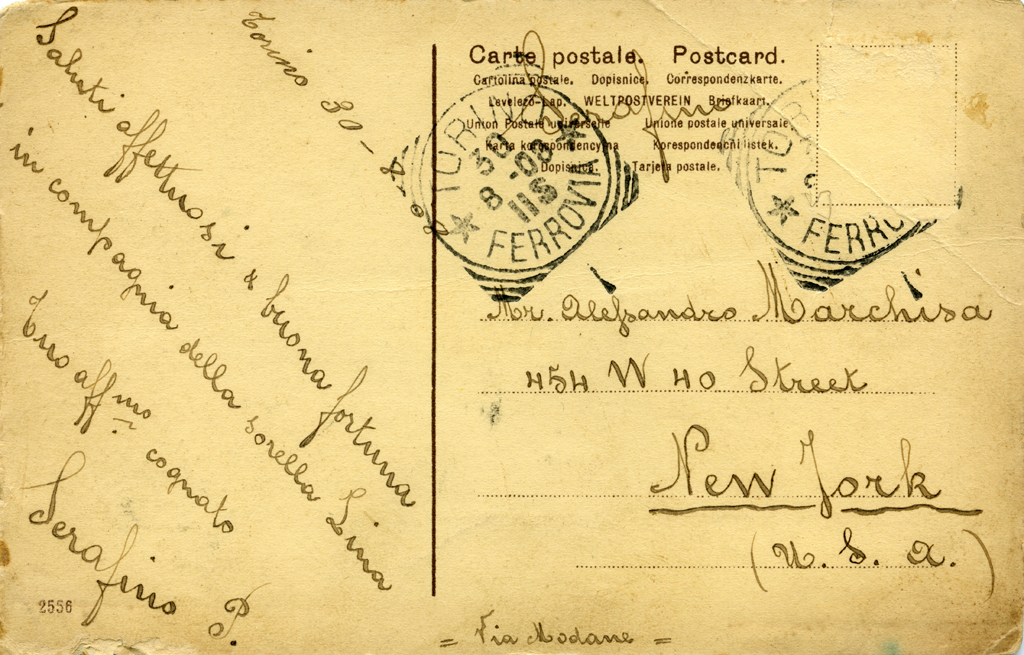 Torino 30-8-08
Saluti affettuosi & buona fortuna
in compagnia della sorella Lina
Tuo aff.mo cognato
Serafino P.
2556
Carte postale. Postcard.
Cartolina postale. Dopisnice. Correspondenzkarte.
Levelező-Lap. WELTPOSTVEREIN Briefkaart.
Union Postale universelle Unione postale universale
Karta korespondencyjna Korespondencni listek.
Dopisnica. Tarjeta postale.
Serafino
TORINO
30
8 -08
11S
* FERROVIA *
TORI
* FERRO
Mr. Alessandro Marchisa
454 W 40 Street
New York
(U. S. A.)
= Via Modane =